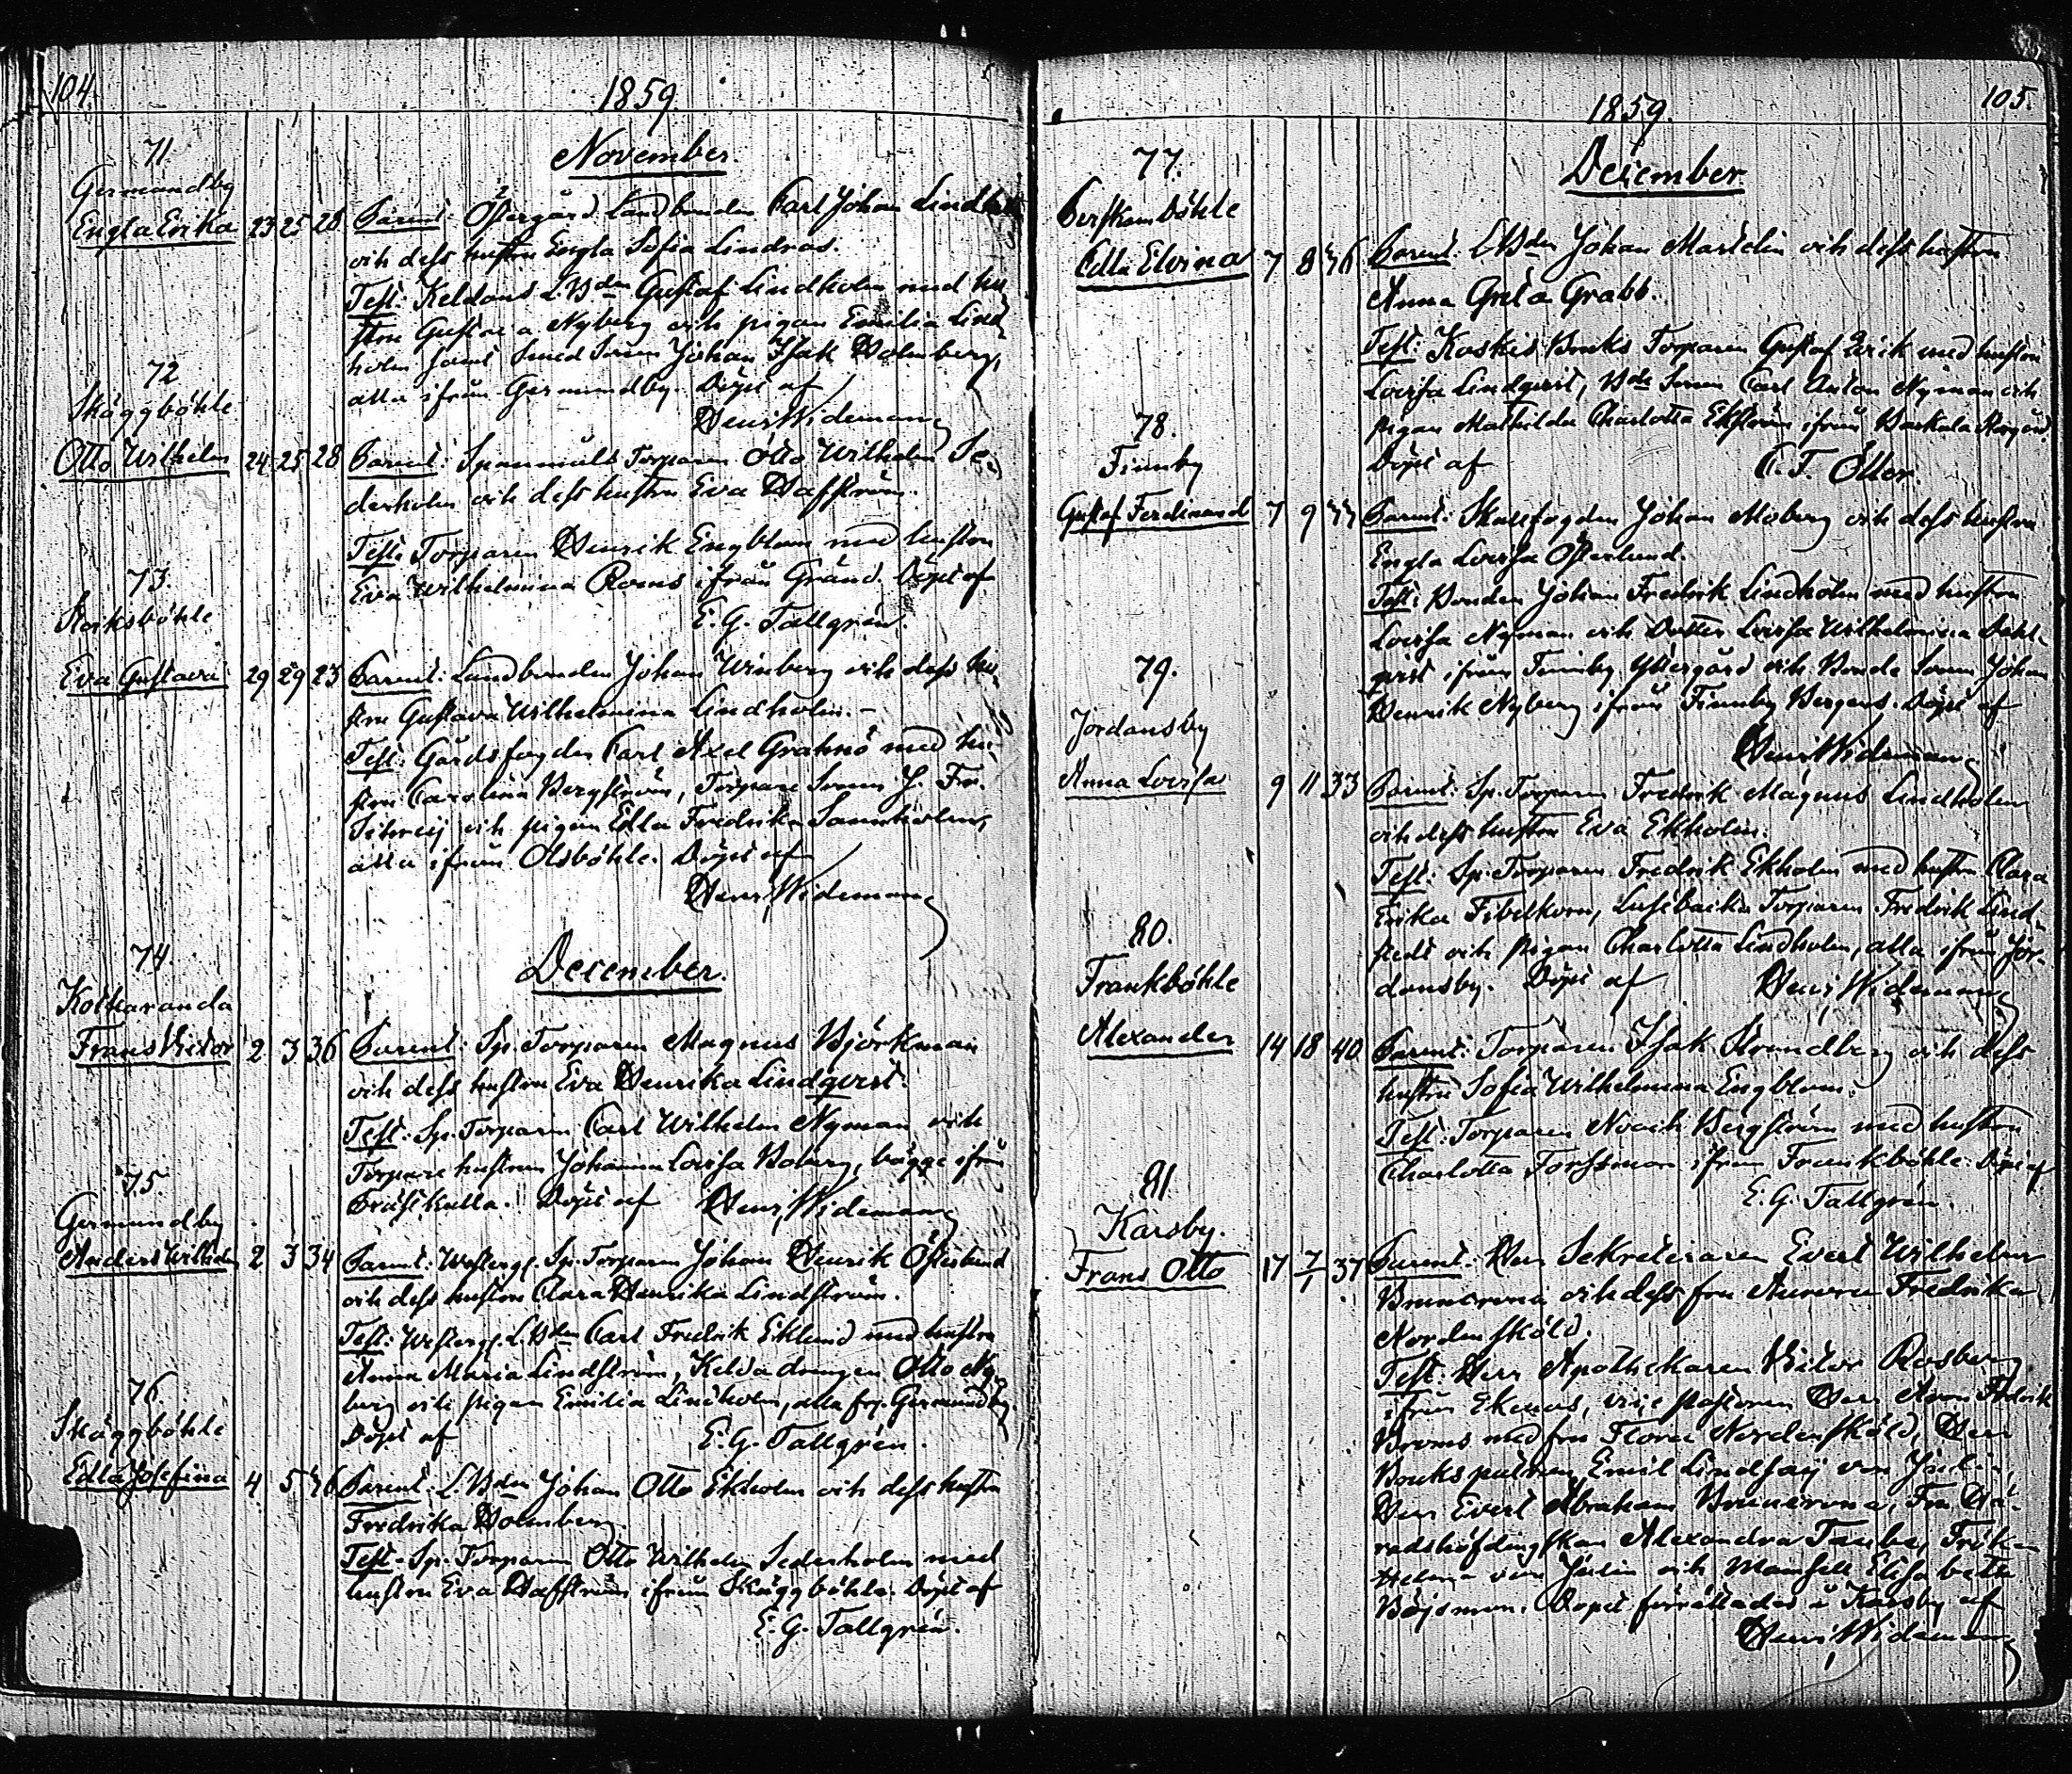 104.
1859.
November.
71.
Germundby
Engla Erika 23 25 28 Parent: Östergård Landbonden Carl Johan Lindholm
och dess hustru Engla Sofia Lindroos.
Test: Keldans L.Bden Gustaf Lindholm med hu
stru Gustava Nyberg och pigan Emilia Lind
holm samt Smed Sonen Johan Isak Holmberg,
alla ifrån Germundby. Döpt af
Henr. Wideman
72
Skäggböhle
Otto Wilhelm 24 25 28 Parent: Spanmåls Torparen Otto Wilhelm Se-
derholm och dess hustru Eva Hafström.
Test: Torparen Henrik Engblom med hustru
Eva Wilhelmina Roms ifrån Gränd. Döpt af
E. G. Tallgrén
73.
Eva Gustava 29 29 23 Parent: Landbonden Johan Winberg och dess hu
stru Gustava Wilhelmina Lindholm. –
Test: Gårdsfogden Carl Axel Grahnö med hu-
stru Carolina Bergström, Torpare Sonen J. Fr.
och pigan Edla Fredrika
alla ifrån Olsböhle. Döpt af
Henr. Wideman
December.
74.
Koikaranda
Frans Victor 2 3 36 Parent: Sp. Torparen Magnus Björkman
och dess hustru Eva Henrika Lindqvist.
Test: Sp. Torparen Carl Wilhelm Nyman och
Torpare hustrun Johanna Lovisa Boberg, bägge ifrån
Prästkulla. Döpt af Henr. Wideman
75.
Germundby
Anders Wilhelm 2 3 34 Parent: Westerg. Sp. Torparen Johan Henrik Österlund
och dess hustru Clara Henrika Lindström.
Test: Westerg. L.Bden Carl Fredrik Eklund med hustru
Anna Maria Lindström, Kelda drengen Otto Ny-
berg och pigan Emilia Lindholm, alla fr. Germundby.
Döpt af E. G. Tallgrén.
76.
Skäggböhle
Edla Josefina 4 5 Parent: L.Bden Johan Otto Ekholm och dess hustru
Fredrika Holmberg.
Test. Sp. Torparen Otto Wilhelm Sederholm med
hustru Eva Hafström ifrån Skäggböhle. Döpt af
E. G. Tallgrén.
1859.
105.
December
77.
Edla Elvina 7 8 Parent: LBden Johan Martelin och dess hustru
Anna Greta Grabb.
Test: Koskis Bruks Torparen Gustaf med hustru
Lovisa Lindqvist, Bde Sonen Carl Anton Nyman och
pigan Mathilda Charlotta Ekström ifrån
Döpt af C. F. Öller.
78.
Finnby
Gustaf Ferdinand 7 9 Parent: Skallfogden Johan Moberg och dess hustru
Engla Lovisa Österlund.
Test: Bonden Johan Fredrik Lindholm med hustru
Lovisa Nyman och Dotter Lovisa Wilhelmina Dahl-
qvist ifrån Finnby Yttergård och Bonde Sonen Johan
Henrik Nyberg ifrån Finnby Bergens. Döpt af
Henr. Wideman
79.
Jordansby
Anna Lovisa 9 11 33 Parent: Sp. Torparen Fredrik Magnus Lindholm
och dess hustru Eva Ekholm.
Test: Sp. Torparen Fredrik Ekholm med hustru Clara
Erika Fibelkorn, Torparen Fredrik Lind-
stedt och pigan Charlotta Lindholm, alla ifrån Jor-
dansby. Döpt af Henr. Wideman
80.
Frankböhle
Alexander 14 18 40 Parent: Torparen Isak Strandberg och dess
hustru Sofia Wilhelmina Engblom.
Test: Torparen Noach Bergström med hustru
Charlotta Forssman ifrån Frankböhle. Döpt af
E. G. Tallgrén.
81
Karsby.
Frans Otto 17 7/1 37 Parent: Herr Sekreteraren Evert Wilhelm
Brunerona och dess fru Aurora Fredrika
Nordensköld.
Test: Herr Apothekaren Victor Rosberg
ifrån Ekenäs, vice pastoren Herr Aron Fredrik
Broms med fru Flora Nordensköld, Herr
Brukspatron Emil Lindsay von Julin,
Herr Evert Abraham Brunerona, Fru Hä-
radshöfdingskan Alexandra Taube, Frök-
Helena von Julin och Mamsell Elisabeth
Böjsman. Dopet förrättades å Karsby af
Henr. Wideman